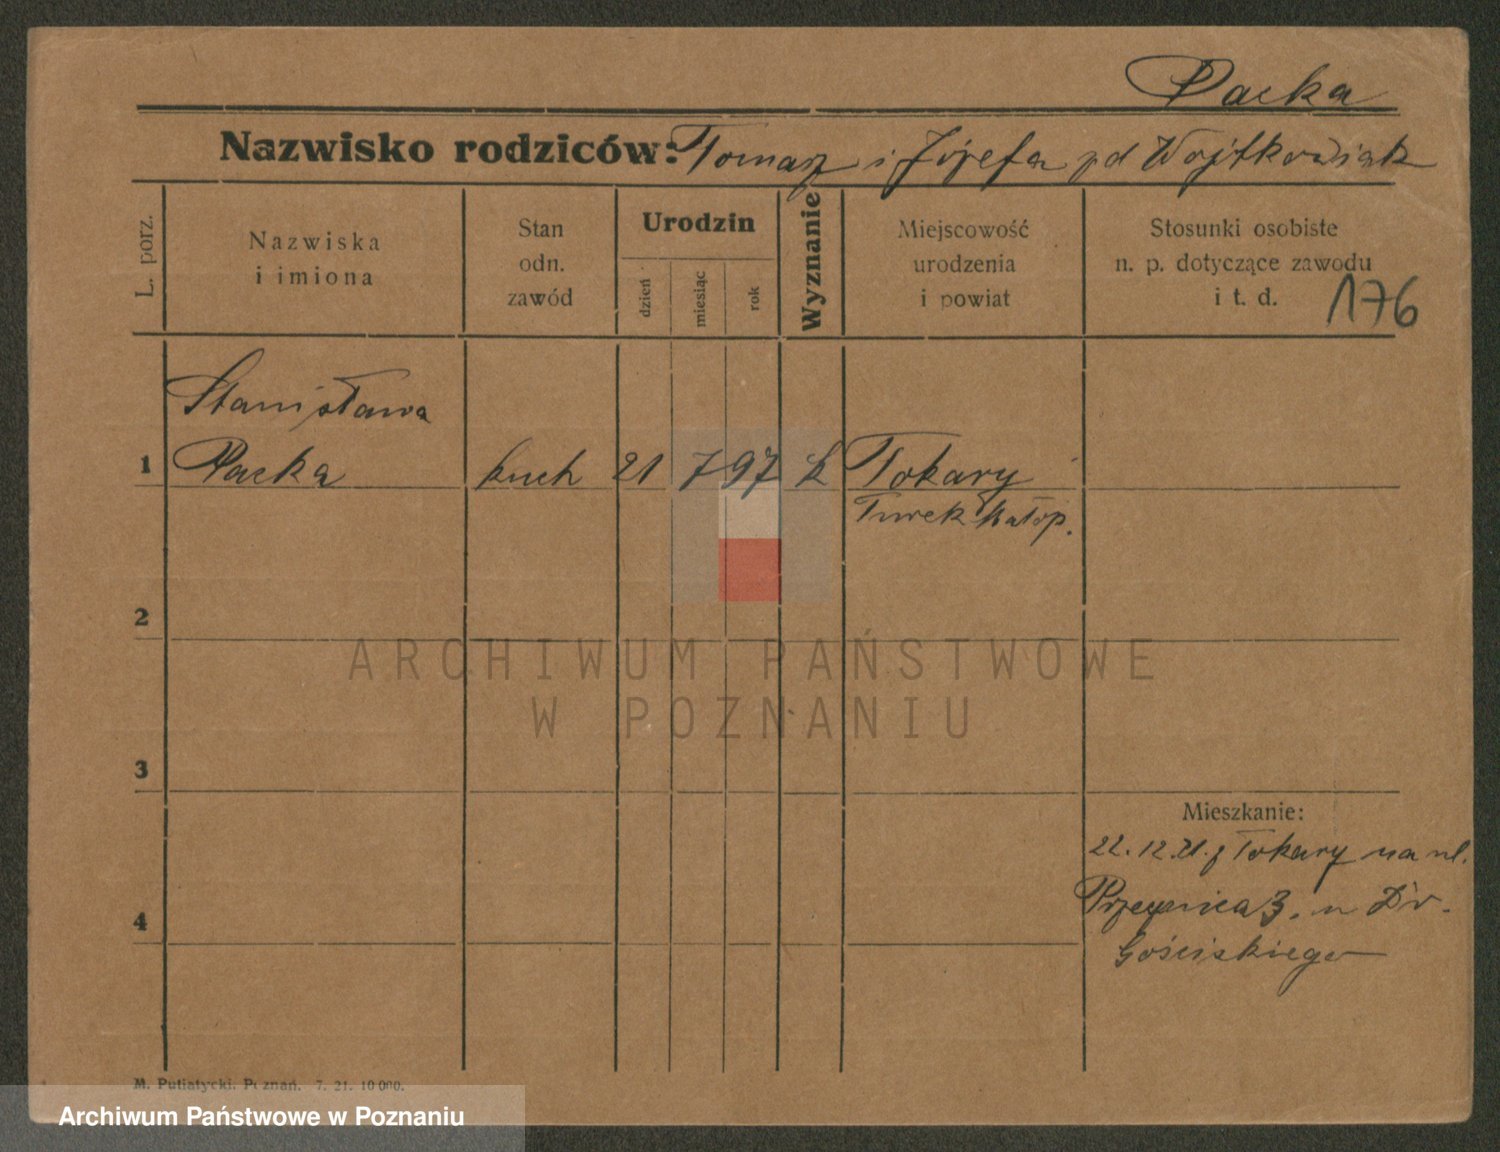 Packa
Nazwisko rodziców: Tomasz i Józefa zd Wojtkowiak
L. porz.
Nazwiska
i imiona
Stan
odn.
zawód
Urodzin
dzień
miesiąc
rok
Wyznanie
Miejscowość
urodzenia
i powiat
Stosunki osobiste
n. p. dotyczące zawodu
i t. d.
176
Stanisława
1 Packa kuch 21 7 97 k Tokary
Turek
2
ARCHIWUM PAŃSTWOWE
W POZNANIU
3
Mieszkanie:
22.12.21. z Tokary na ul.
3. u Dr.
4
Gościskiego
M. Putiatycki. Poznań. 7. 21. 10 000.
Archiwum Państwowe w Poznaniu